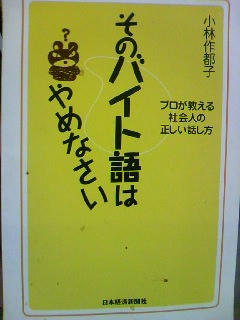 小林作都子
そのバイト語は
やめなさい
プロが教える
社会人の
正しい話し方
?
日本経済新聞社